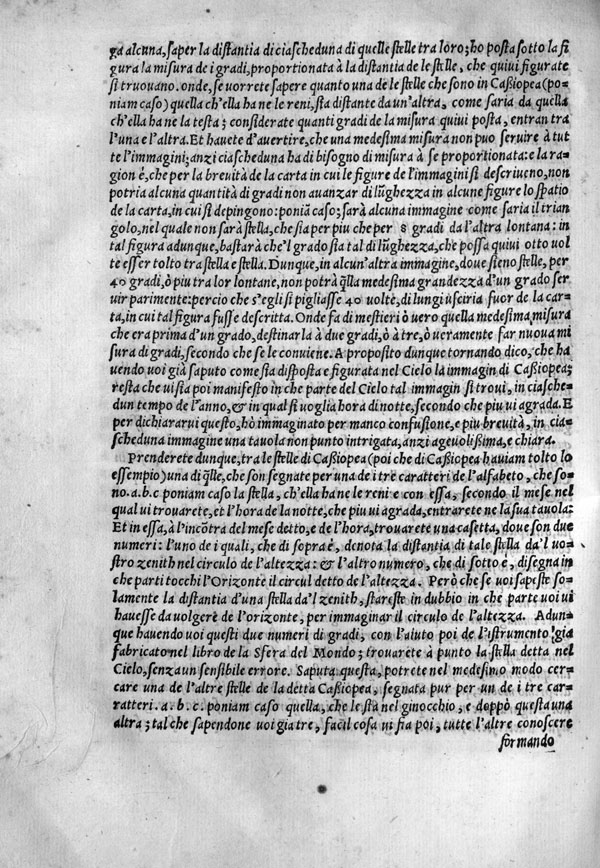 ga alcuna, saper la distantia di ciascheduna di quelle stelle tra loro; ho posta sotto la fi
gura la misura de i gradi, proportionata à la distantia de le stelle, che quiui figurate
si truouano. onde, se vorrete sapere quanto una de le stelle che sono in Caßiopea (po-
niam caso) quella ch'ella ha ne le reni, sia distante da un'altra, come saria da quella
ch'ella ha ne la testa; considerate quanti gradi de la misura quiui posta, entran tra
l'una e l'altra. Et hauete d'auertire, che una medesima misura non puo seruire à tut
te l'immagini; anzi ciascheduna ha di bisogno di misura à se proportionata: e la ra-
gion è, che per la breuità de la carta in cui le figure de l'immagini si descriueno, non
potria alcuna quantità di gradi non auanzar di lũghezza in alcune figure lo spatio
de la carta, in cui si depingono: poniā caso; sarà alcuna immagine come saria il trian
golo, nel quale non sarà stella, che sia per piu che per 8 gradi da l'altra lontana: in
tal figura adunque, bastarà che'l grado sia tal di lũghezza, che possa quiui otto uol
te esser tolto tra stella e stella. Dunque, in alcun'altra immagine, doue sieno stelle, per
40 gradi, ò piu tra lor lontane, non potrà q̃lla medesima grandezza d'un grado ser
uir parimente: percio che s'egli si pigliasse 40 uolte, di lungi usciria fuor de la car-
ta, in cui tal figura fusse descritta. Onde fa di mestieri ò uero quella medesima misura
che era prima d'un grado, destinarla à due gradi, ò à tre, ò ueramente far nuoua mi
sura di gradi, secondo che se le conuiene. A proposito dunque tornando dico, che ha
uendo uoi già saputo come sia disposta e figurata nel Cielo la immagin di Caßiopea;
resta che ui sia poi manifesto in che parte del Cielo tal immagin si troui, in ciasche-
dun tempo de l'anno, & in qual si uoglia hora di notte, secondo che piu ui agrada. E
per dichiararui questo, hò immaginato per manco confusione, e piu breuità, in cia-
scheduna immagine una tauola non punto intrigata, anzi ageuolißima, e chiara.
Prenderete dunque, tra le stelle di Caßiopea (poi che di Caßiopea hauiam tolto lo
essempio) una di q̃lle, che son segnate per una de i tre caratteri de l'alfabeto, che so-
no .a.b.c poniam caso la stella, ch'ella ha ne le reni e con essa, secondo il mese nel
qual ui trouarete, et l'hora de la notte, che piu ui agrada, entrarete ne la sua tauola:
Et in essa, à l'incōtra del mese detto, e de l'hora, trouarete una casetta, doue son due
numeri: l'uno de i quali, che di sopra è, denota la distantia di tale stella da'l uo-
stro zenith nel circulo de l'altezza: & l'altro numero, che di sotto è, disegna in
che parti tocchi l'Orizonte il circul detto de l'altezza. Però che se uoi sapeste so-
lamente la distantia d'una stella da'l zenith, stareste in dubbio in che parte uoi ui
hauesse da uolgere de l'orizonte, per immaginar il circulo de l'altezza. Adun-
que hauendo uoi questi due numeri di gradi, con l'aiuto poi de l'istrumento già
fabricato nel libro de la Sfera del Mondo; trouarete à punto la stella detta nel
Cielo, senza un sensibile errore. Saputa questa, potrete nel medesimo modo cer-
care una de l'altre stelle de la detta Caßiopea, segnata pur per un de i tre ca-
ratteri .a.b.c. poniam caso quella, che le sta nel ginocchio, e doppò questa una
altra; tal che sapendone uoi gia tre, facil cosa ui fia poi, tutte l'altre conoscere
formando